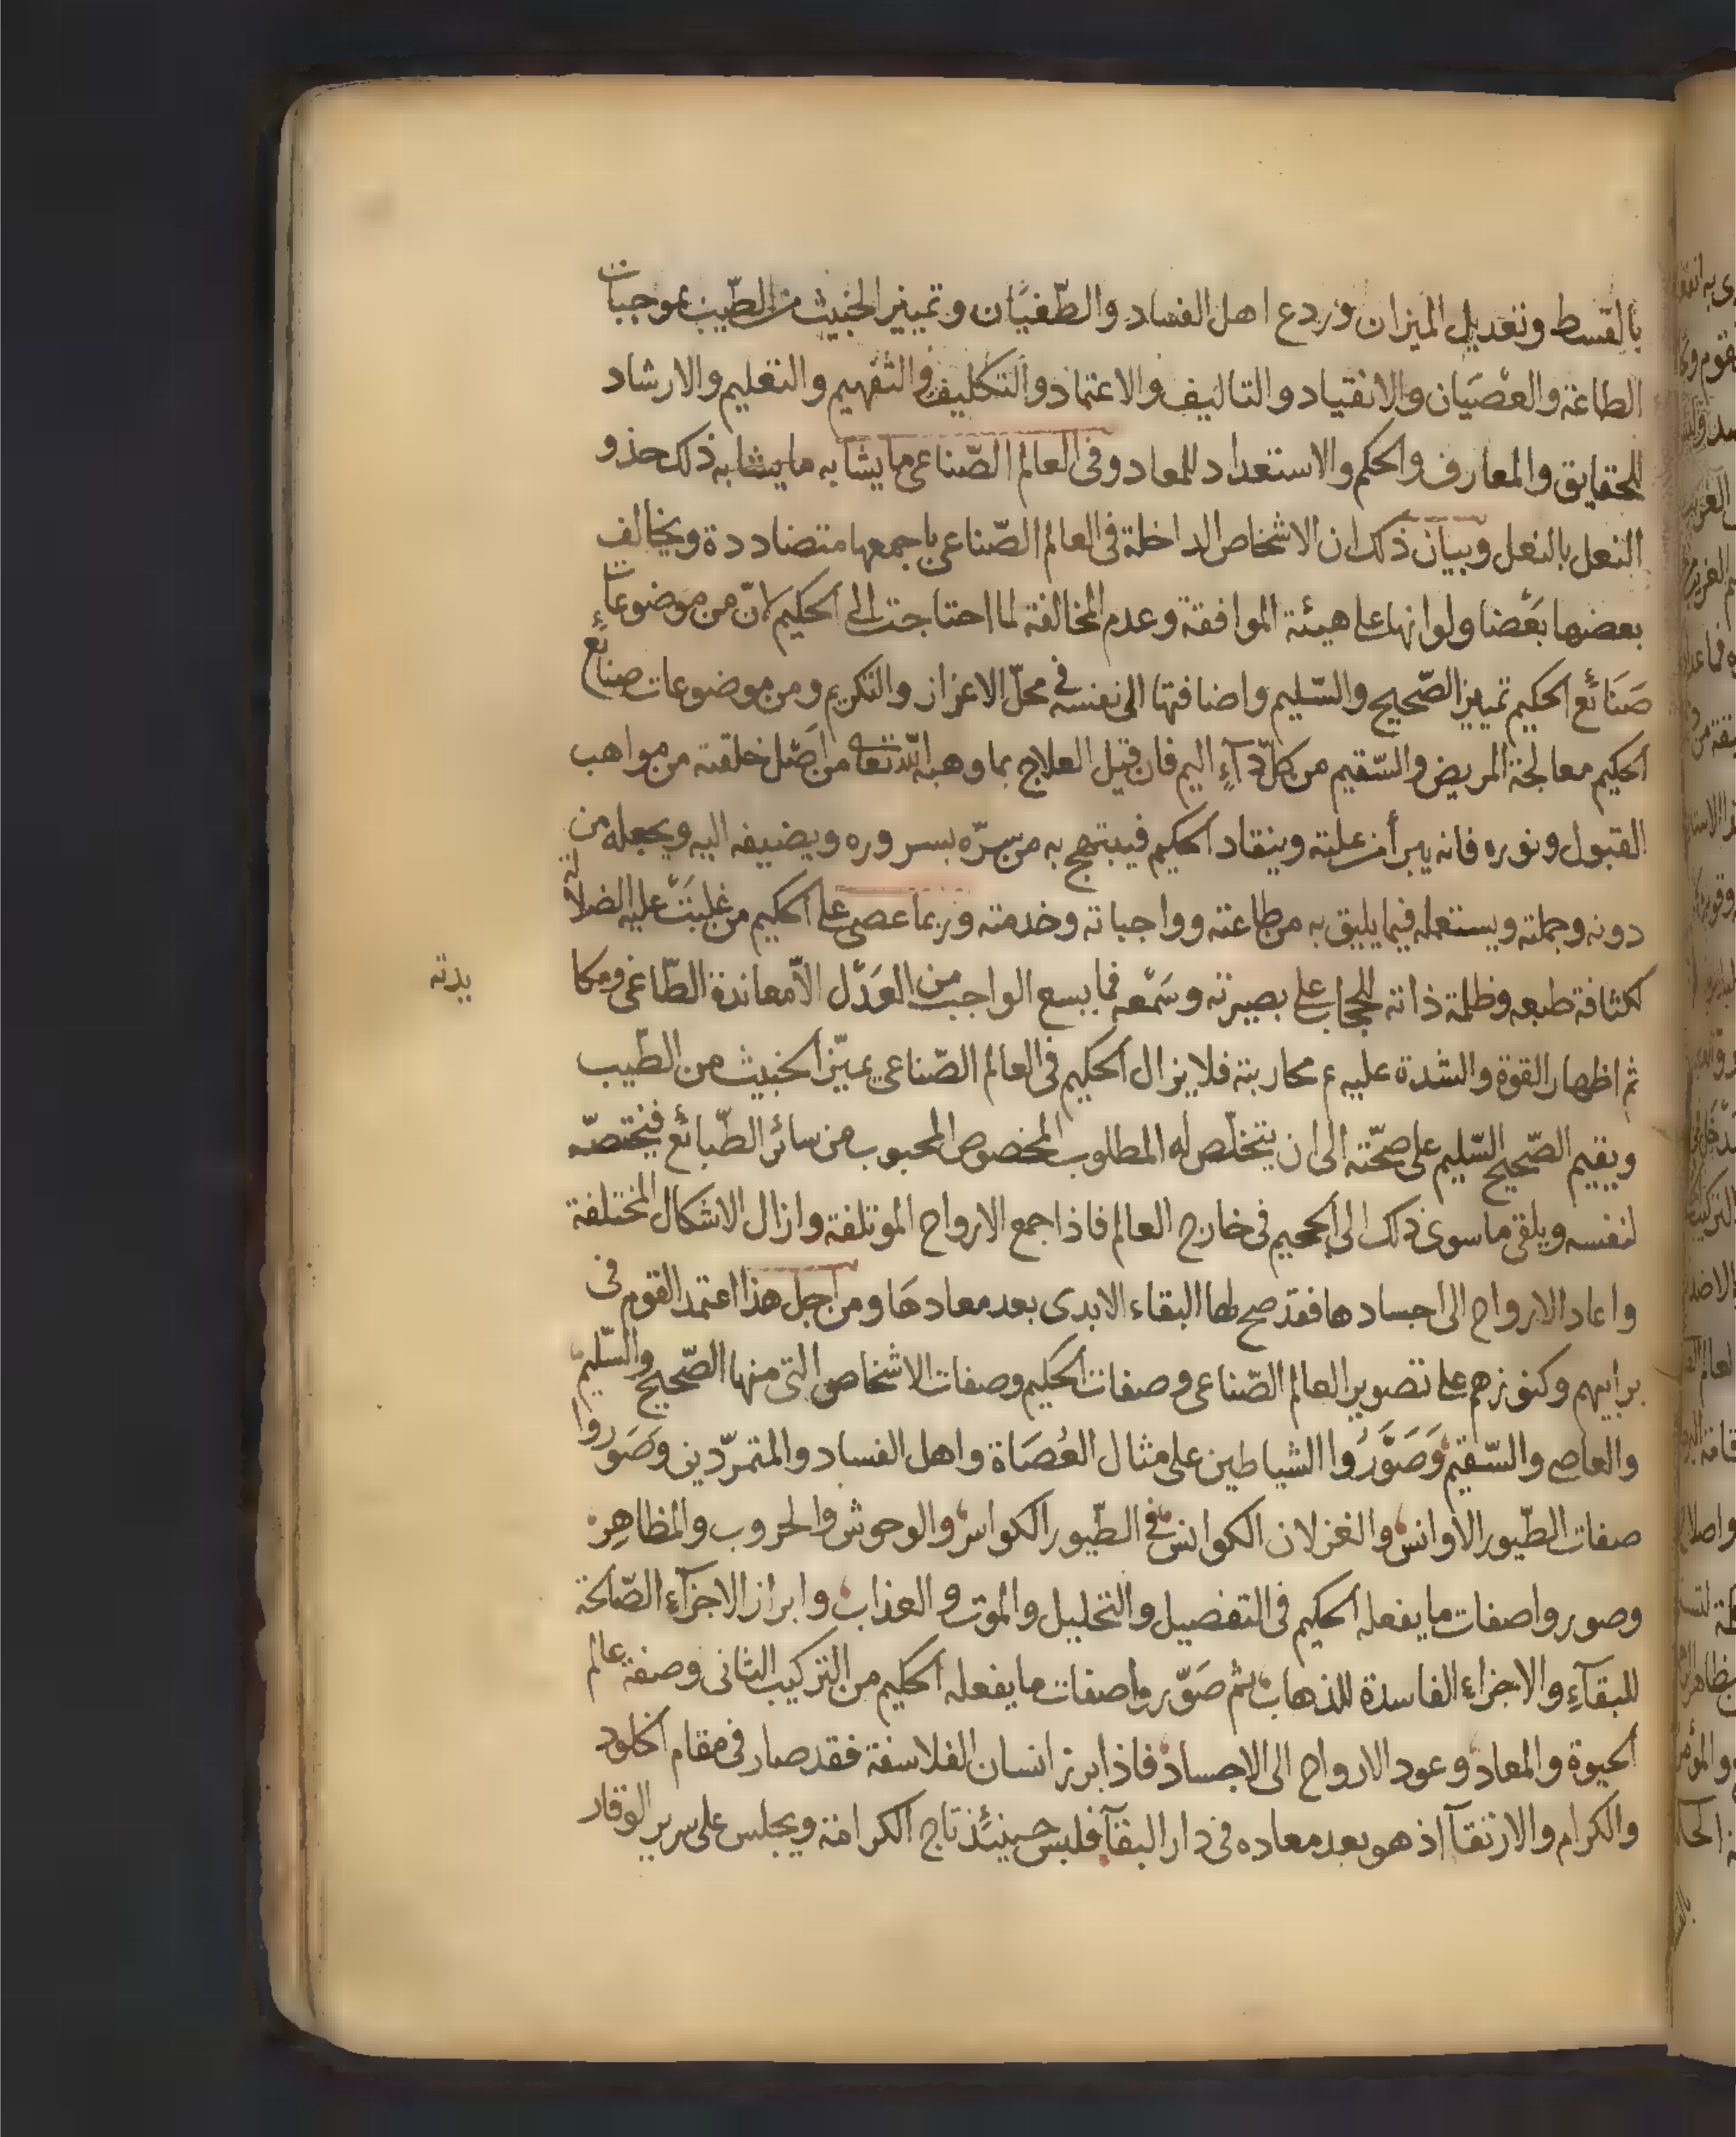 بالقسط وتعديل الميزان وردع اهل الفساد والطغيان وتمييز الخبيث من الطيب بموجبات
الطاعة والعصيان والانقياد والتاليف والاعتماد والتكليف والتفهيم والتعليم والارشاد
للحقايق والمعارف والحكم والاستعداد للمعاد وفى العالم الصّناعى ما يشابه ما يشابه ذلك حذو
النعل بالنعل وبيان ذلك ان الاشخاص الداخلة فى العالم الصّناعى باجمعها متضاددة ويخالف
بعضها بعضا ولو انها على هيئة الموافقة وعدم المخالفة لما احتاجت الى الحكيم لانّ من موضوعات
صَنَائع الحكيم تمييز الصّحيح والسّليم واضافتها الى نفسه فى محلّ الاعزاز والتكريم ومن موضوعات صنائع
الحكيم معالجة المريض والسّقيم من كلّ دآءٍ اليم فان قبل العلاج بما وهبه الله تعالى من اصل خلقته من مواهب
القبول ونوره فانه يبرأ من علته وينقاد الحكيم فيبتهج به من سرّه بسروره ويضيفه اليه ويجعله من
دونه وجملته ويستعمله فيما يليق به من طاعته وواجباته وخدمته وربما عصى على الحكيم من غلبَتْ عليه الضلالة
لكثافة طبعه وظلمة ذاته للحجاب على بصيرته وسَمْعه فما يسع الواجب من العَدْل الّا معاندة الطّاغى ومكا
يدته
ثم اظهار القوة والشدة عليه ع محاربته فلا يزال الحكيم فى العالم الصّناعى يميّز الخبيث من الطّيب
ويقيم الصّحيح السّليم على صحّته الى ان يتخلّص له المطلوب المخصوص المحبوب من سائر الطّبائع فيختصّه
لنفسه ويلقى ما سوى ذلك الى الجحيم فى خارج العالم فاذا جمع الارواح الموتلفة وازال الاشكال المختلفة
واعاد الارواح الى اجسادها فقد صح لها البقاء الابدى بعد معادهَا ومن اجل هذا اعتمد القوم فى
برابيهم وكنوزهم على تصوير العالم الصّناعى وصفات الحكيم وصفات الاشخاص التى منها الصّحيح والسّليم
والعاصى والسّقيم وَصَوَّرُوا الشياطين على مثال العُصَاة واهل الفساد والمتمرّدين وصَوروا
صفات الطّيور الاوانس والغزلان الكوانس فى الطّيور الكواسر والوحوش والحروب والمظاهِر
وصوروا صفات ما يفعله الحكيم فى التفصيل والتحليل والموت والعذاب وابراز الاجزآء الصّالحة
للبقآءِ والاجزاء الفاسدة للذهاب ثم صَوّروا صفات ما يفعله الحكيم من التركيب الثانى وصفة عالم
الحيوة والمعاد وعود الارواح الى الاجساد فاذا ابرز انسان الفلاسفة فقد صار فى مقام الخلود
والكرام والارتقآ اذ هو بعد معاده فى دار البقآ فلبس حينئذ تاج الكرامة ويجلس على سرير الوقار